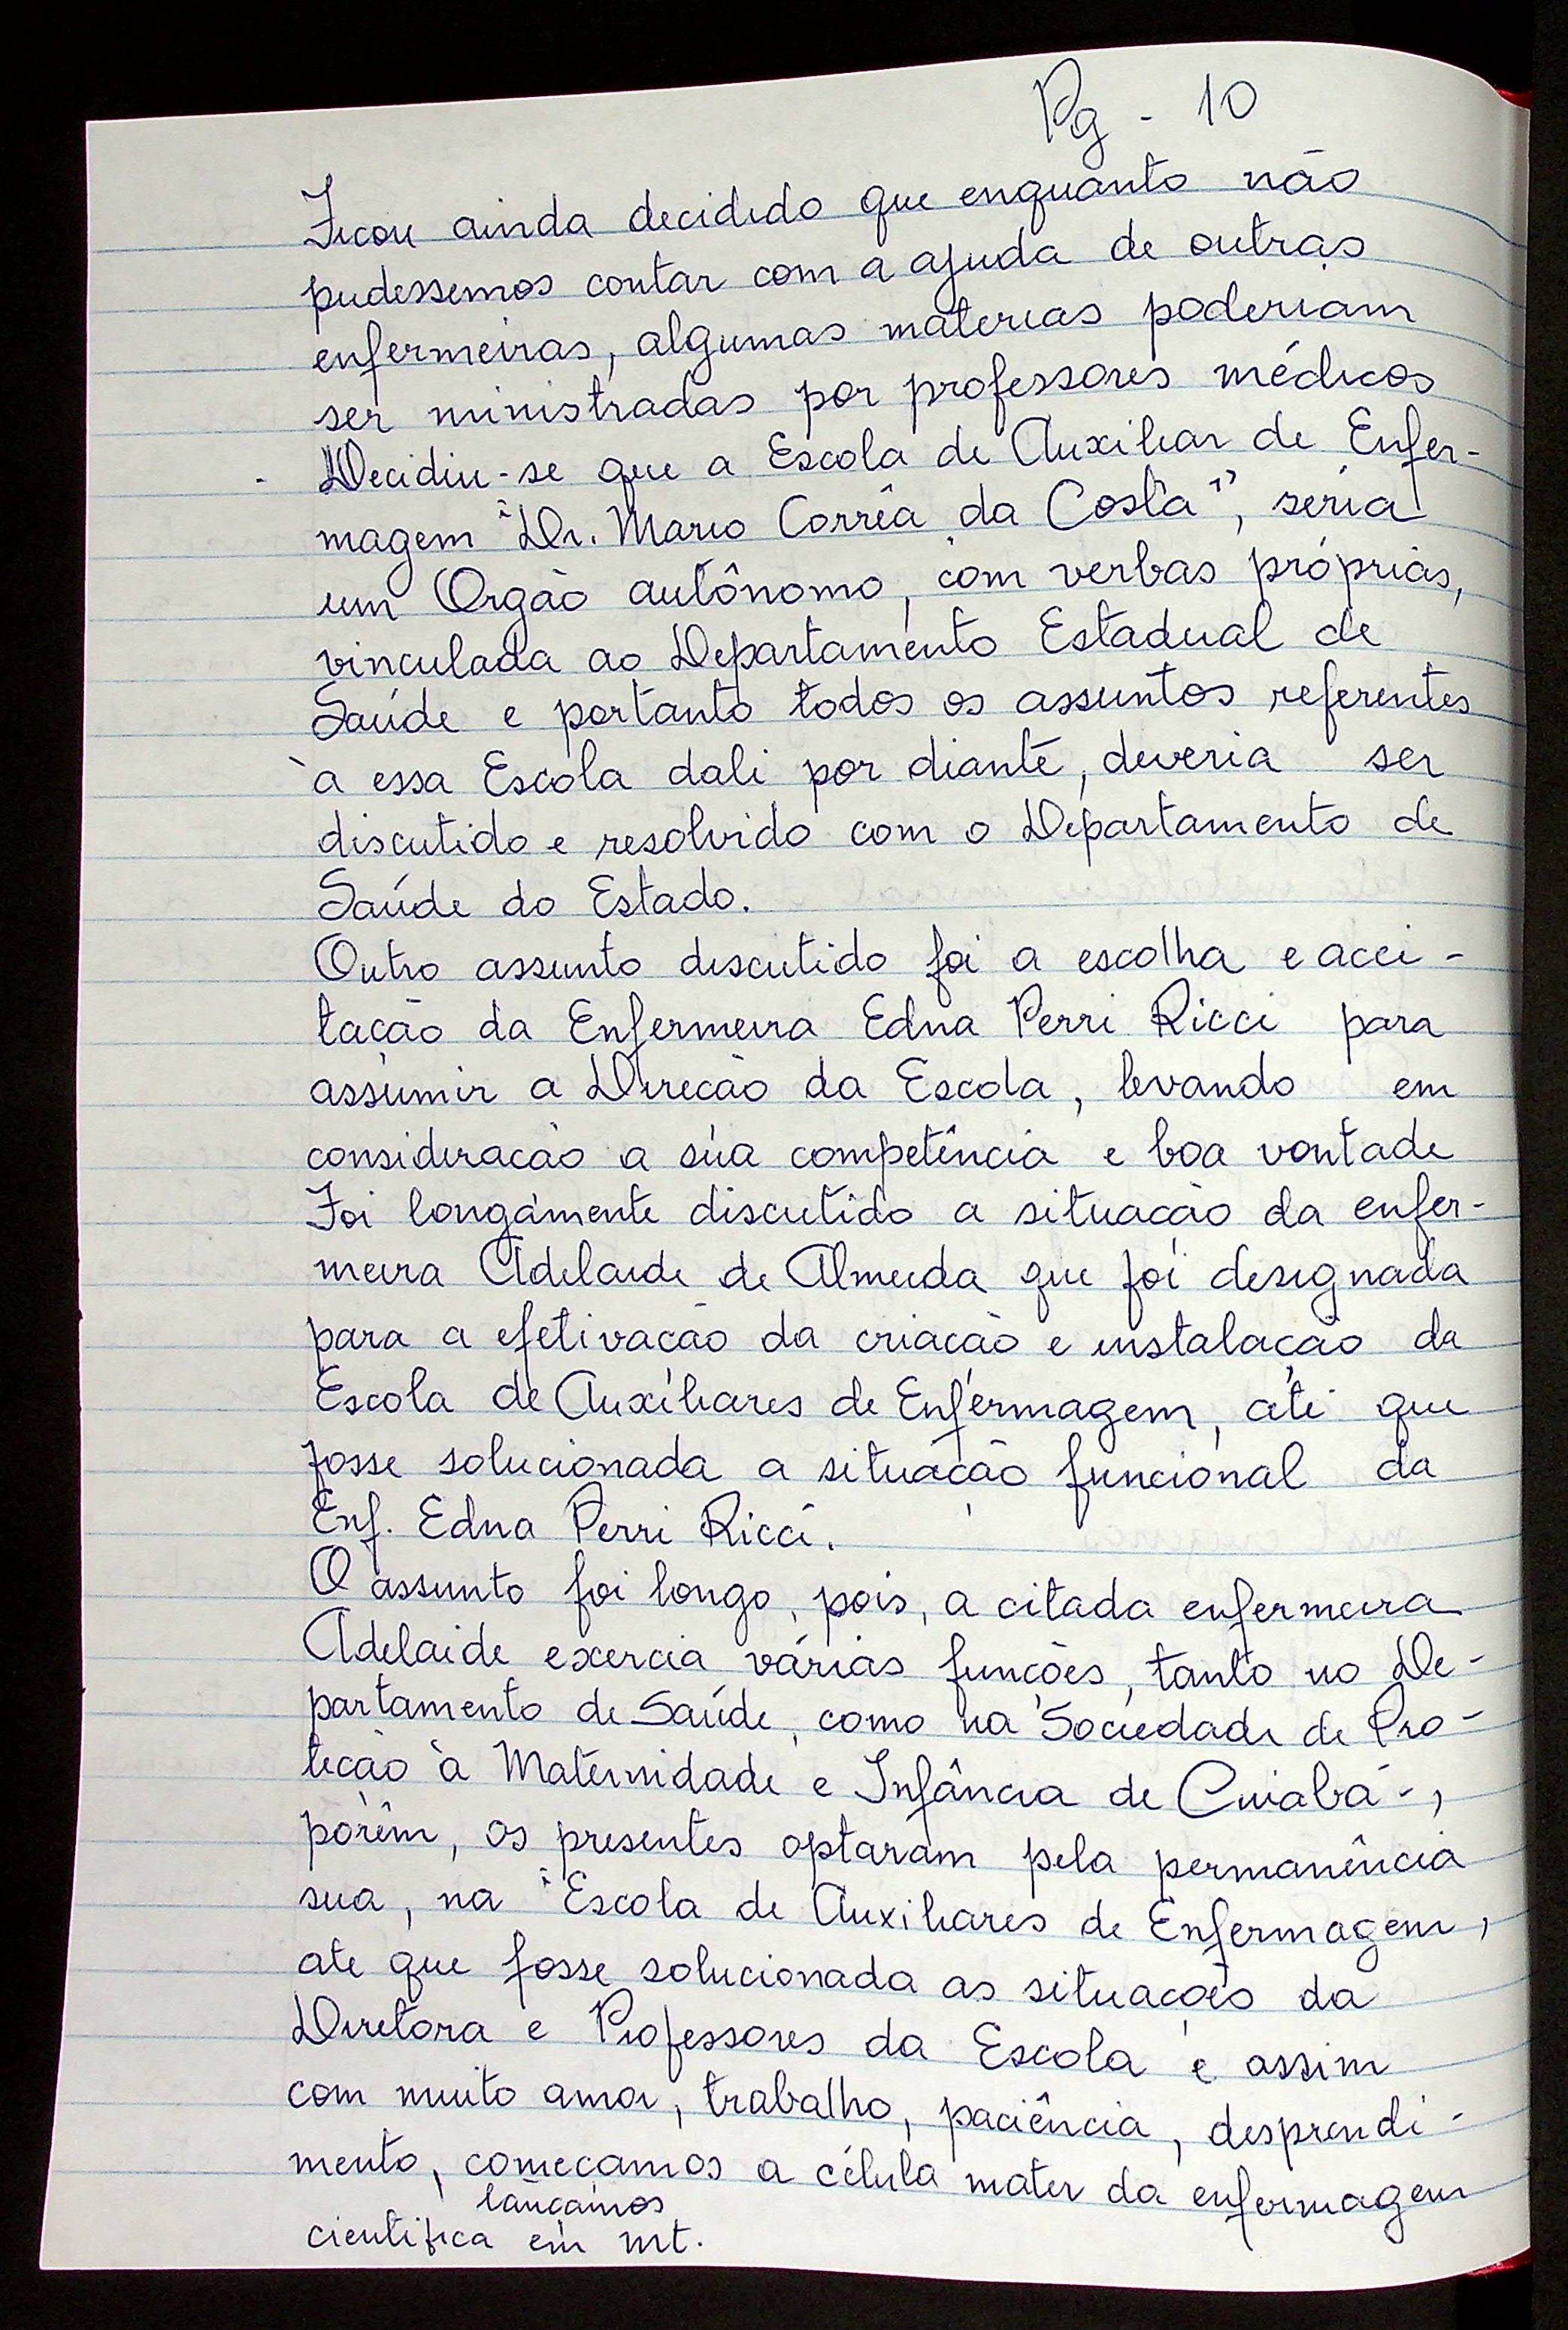 Pg - 10
Ficou ainda decidido que enquanto não
pudessemos contar com a ajuda de outras
enfermeiras, algumas materias poderiam
ser ministradas por professores médicos
Decidiu-se que a Escola de Auxiliar de Enfer-
magem "Dr. Mario Corrêa da Costa", seria
um Orgão autônomo, com verbas próprias,
vinculada ao Departamento Estadual de
Saúde e portanto todos os assuntos referentes
à essa Escola dali por diante, deveria ser
discutido e resolvido com o Departamento de
Saúde do Estado.
Outro assunto discutido foi a escolha e acei-
tação da Enfermeira Edna Perri Ricci para
assumir a Direção da Escola, levando em
consideração a sua competência e boa vontade
Foi longamente discutido a situação da enfer-
meira Adelaide de Almeida que foi designada
para a efetivação da criação e instalação da
Escola de Auxiliares de Enfermagem, até que
fosse solucionada a situação funcional da
Enf. Edna Perri Ricci.
O assunto foi longo, pois, a citada enfermeira
Adelaide exercia várias funções, tanto no De-
partamento de Saúde, como na Sociedade de Pro-
teção à Maternidade e Infância de Cuiabá-,
porêm, os presentes optaram pela permanência
sua, na "Escola de Auxiliares de Enfermagem,
ate que fosse solucionada as situações da
Diretora e Professores da Escola e assim
com muito amor, trabalho, paciência, desprendi-
mento, começamos a célula mater da enfermagem
lançamos
cientifica em mt.